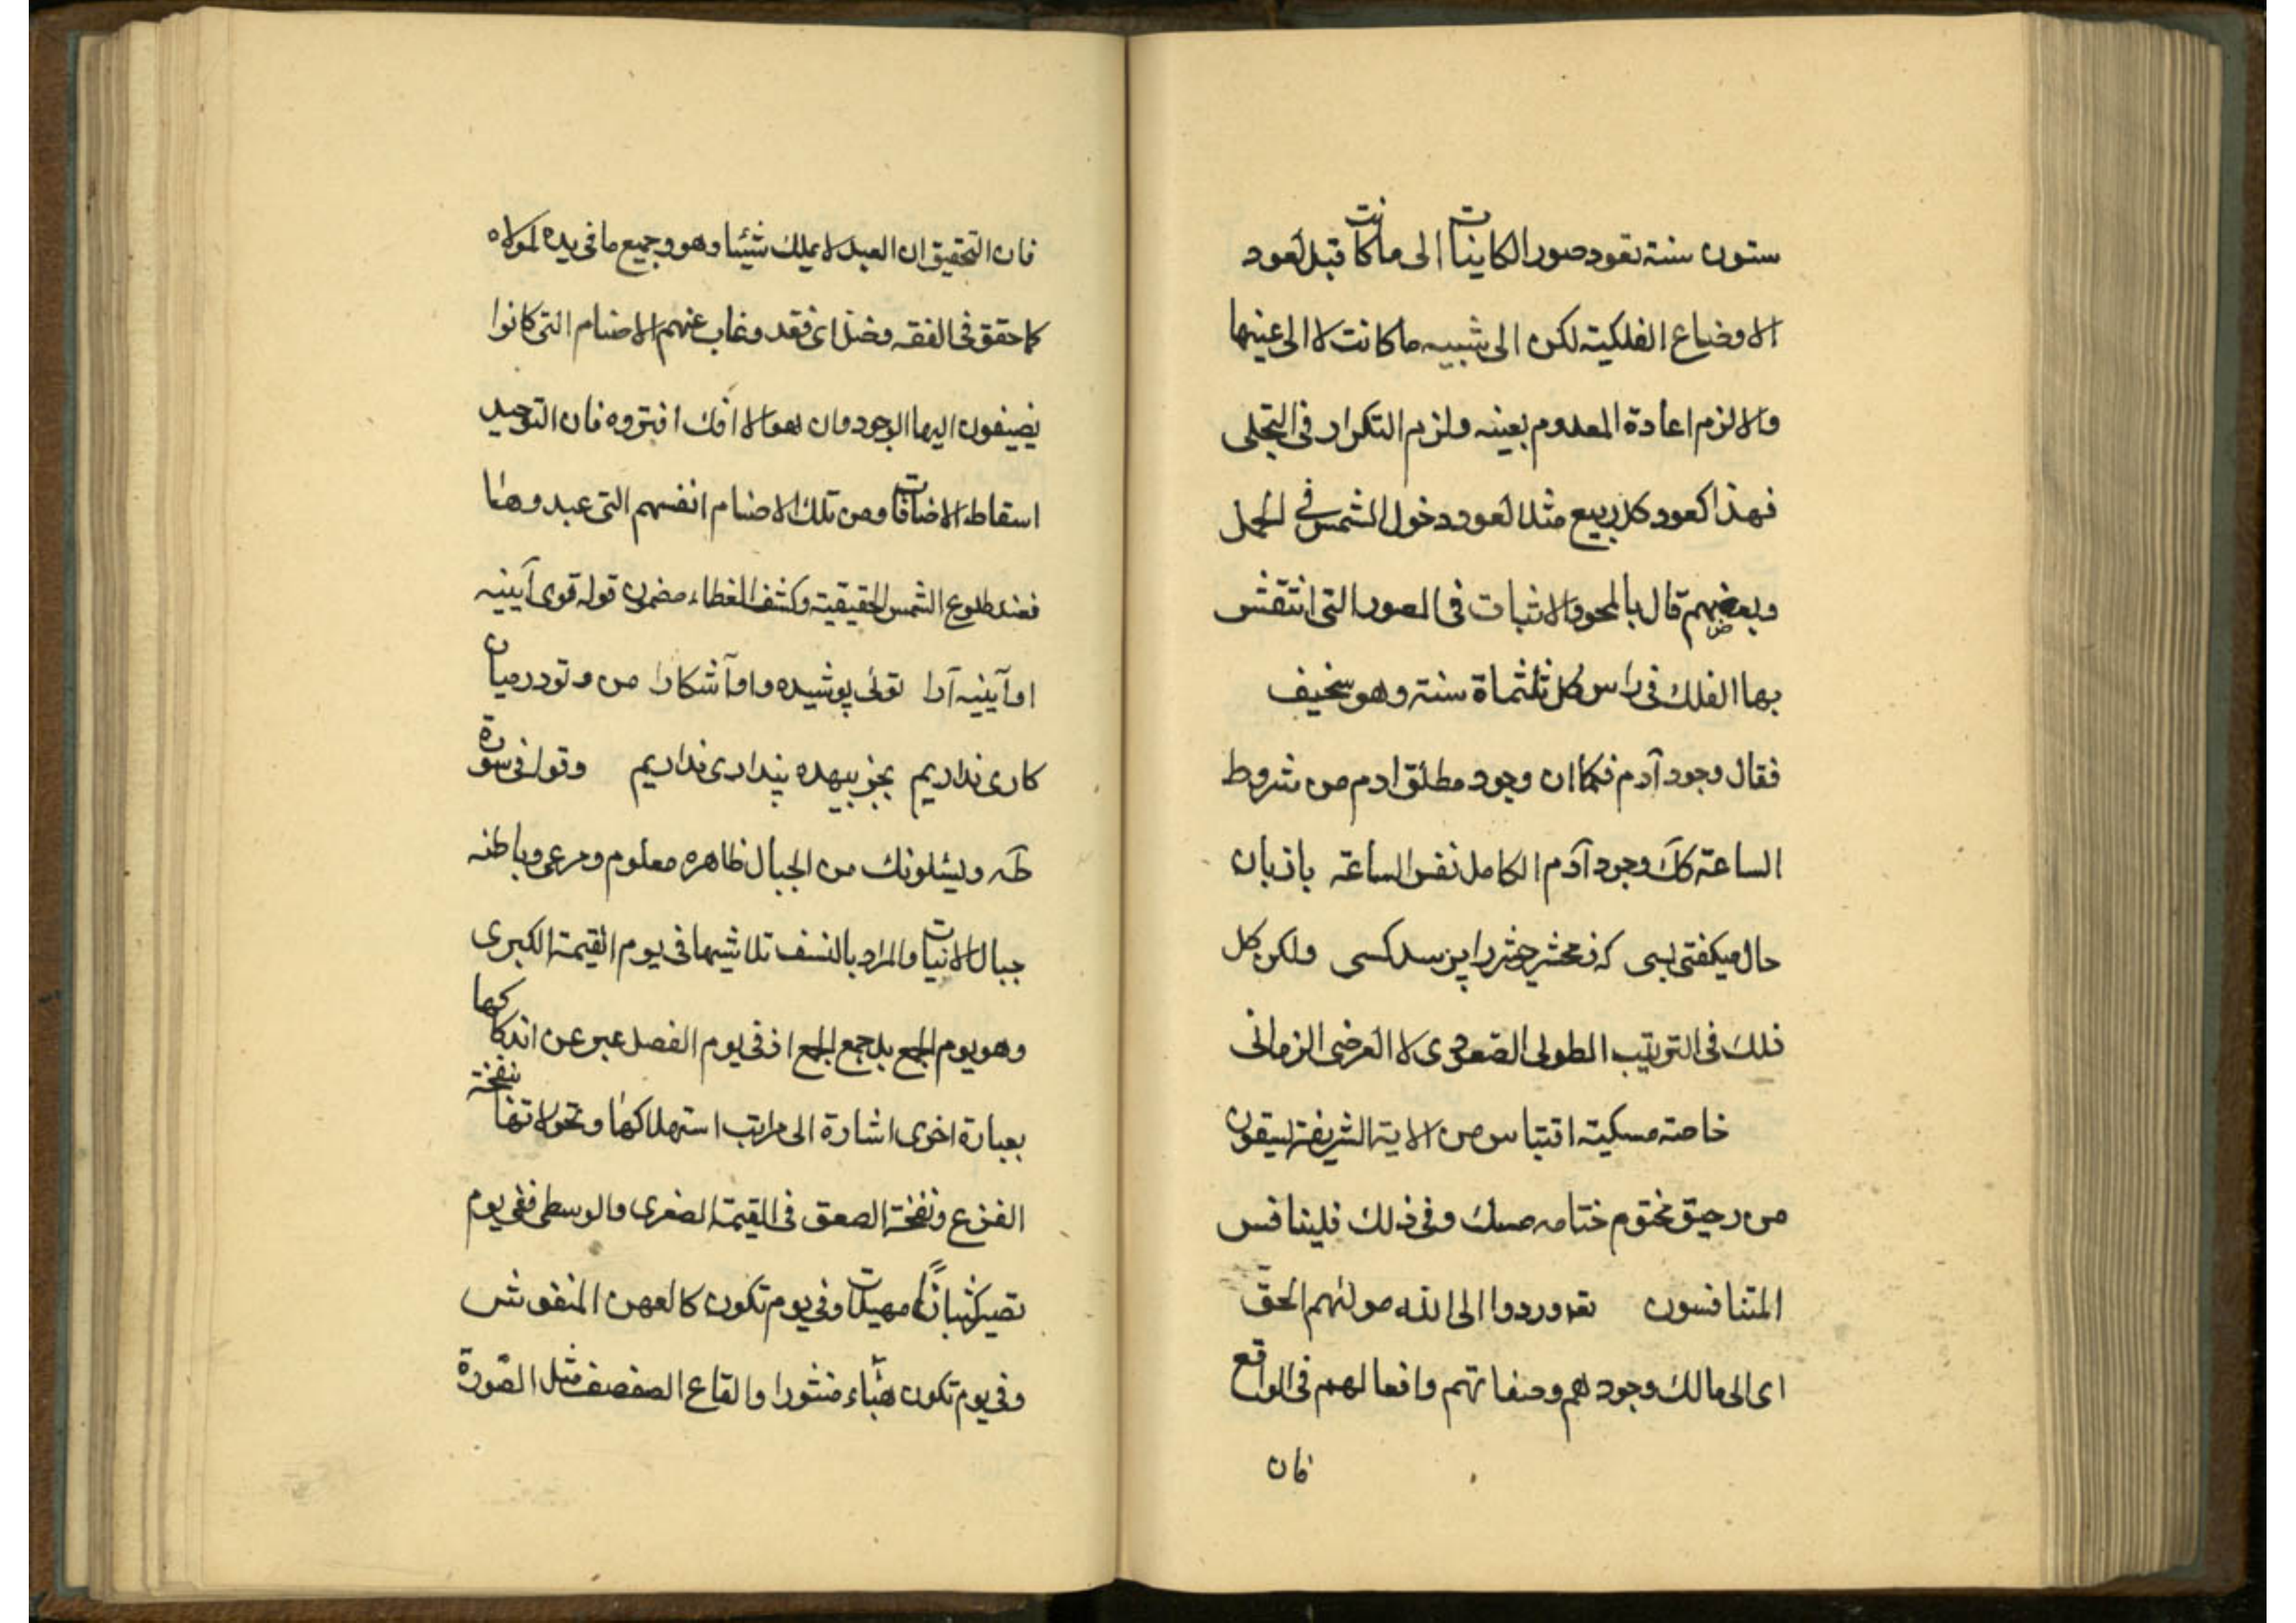 ستون سنة تعود صور الكاينات الى ما كانت قبل لعود
الاوضاع الفلكية لكن الى شبيه ما كانت لا الى عينها
والا لزم اعادة المعدوم بعينه ولزم التكرار فى التجلى
فهذا كعود كل ربيع مثلا لعود دخول الشمس فى الحمل
وبعضهم قال بالمحو والاثبات فى الصور التى انتقش
بها الفلك فى راس كل ثلثماة سنة وهو سخيف
فقال وجود آدم فكما ان وجود مطلق ادم من شروط
الساعة كك وجود آدم الكامل نفس الساعة بازبان
حال ميكفتى بسى كه ز محشر حشر را پرسد كسى ولكن كل
ذلك فى الترتيب الطولى الصعودى لا العرضى الزمانى
خاصه مسكية اقتباس من الاية الشريفة يسقون
من رحيق مختوم ختامه مسك وفى ذلك فليتنافس
المتنافسون وردوا الى الله مولئهم الحق
اى الى مالك وجودهم وصفاتهم وافعالهم فى الواقع
فان
فان التحقيق ان العبد لا يملك شيئا وهو وجميع ما فى يده لمولاه
كما حقق فى الفقه وضل اى فقد وغاب عنهم الاصنام التى كانوا
يضيفون اليها الوجود وان هو الا افك افتروه فان التوحيد
اسقاط الاضافات ومن تلك الاصنام انفسهم التى عبدوها
فعند طلوع الشمس الحقيقية وكشف الغطاء مضمون قوله قوى آيينه
او آيينه آرا توئى پوشيده واو آشكارا من و تو در ميان
كارى نداريم بجز بيهده پندارى نداريم وقوله فى سورة
طه ويسئلونك من الجبال ظاهره معلوم ومرعى وباطنه
جبال الانيات والمراد بالنسف تلاشيها فى يوم القيمة الكبرى
وهو يوم الجمع بل جمع الجمع اذ فى يوم الفصل عبر عن اندكاكها
بعبارة اخرى اشارة الى مراتب استهلاكها وتحولاتها بنفخة
الفزع ونفخة الصعق فى القيمة الصغرى والوسطى ففى يوم
تصير كثبانًا مهيلات وفى يوم تكون كالعهن المنفوش
وفى يوم تكون هبّاء منثورا والقاع الصفصف مثل الصّورة